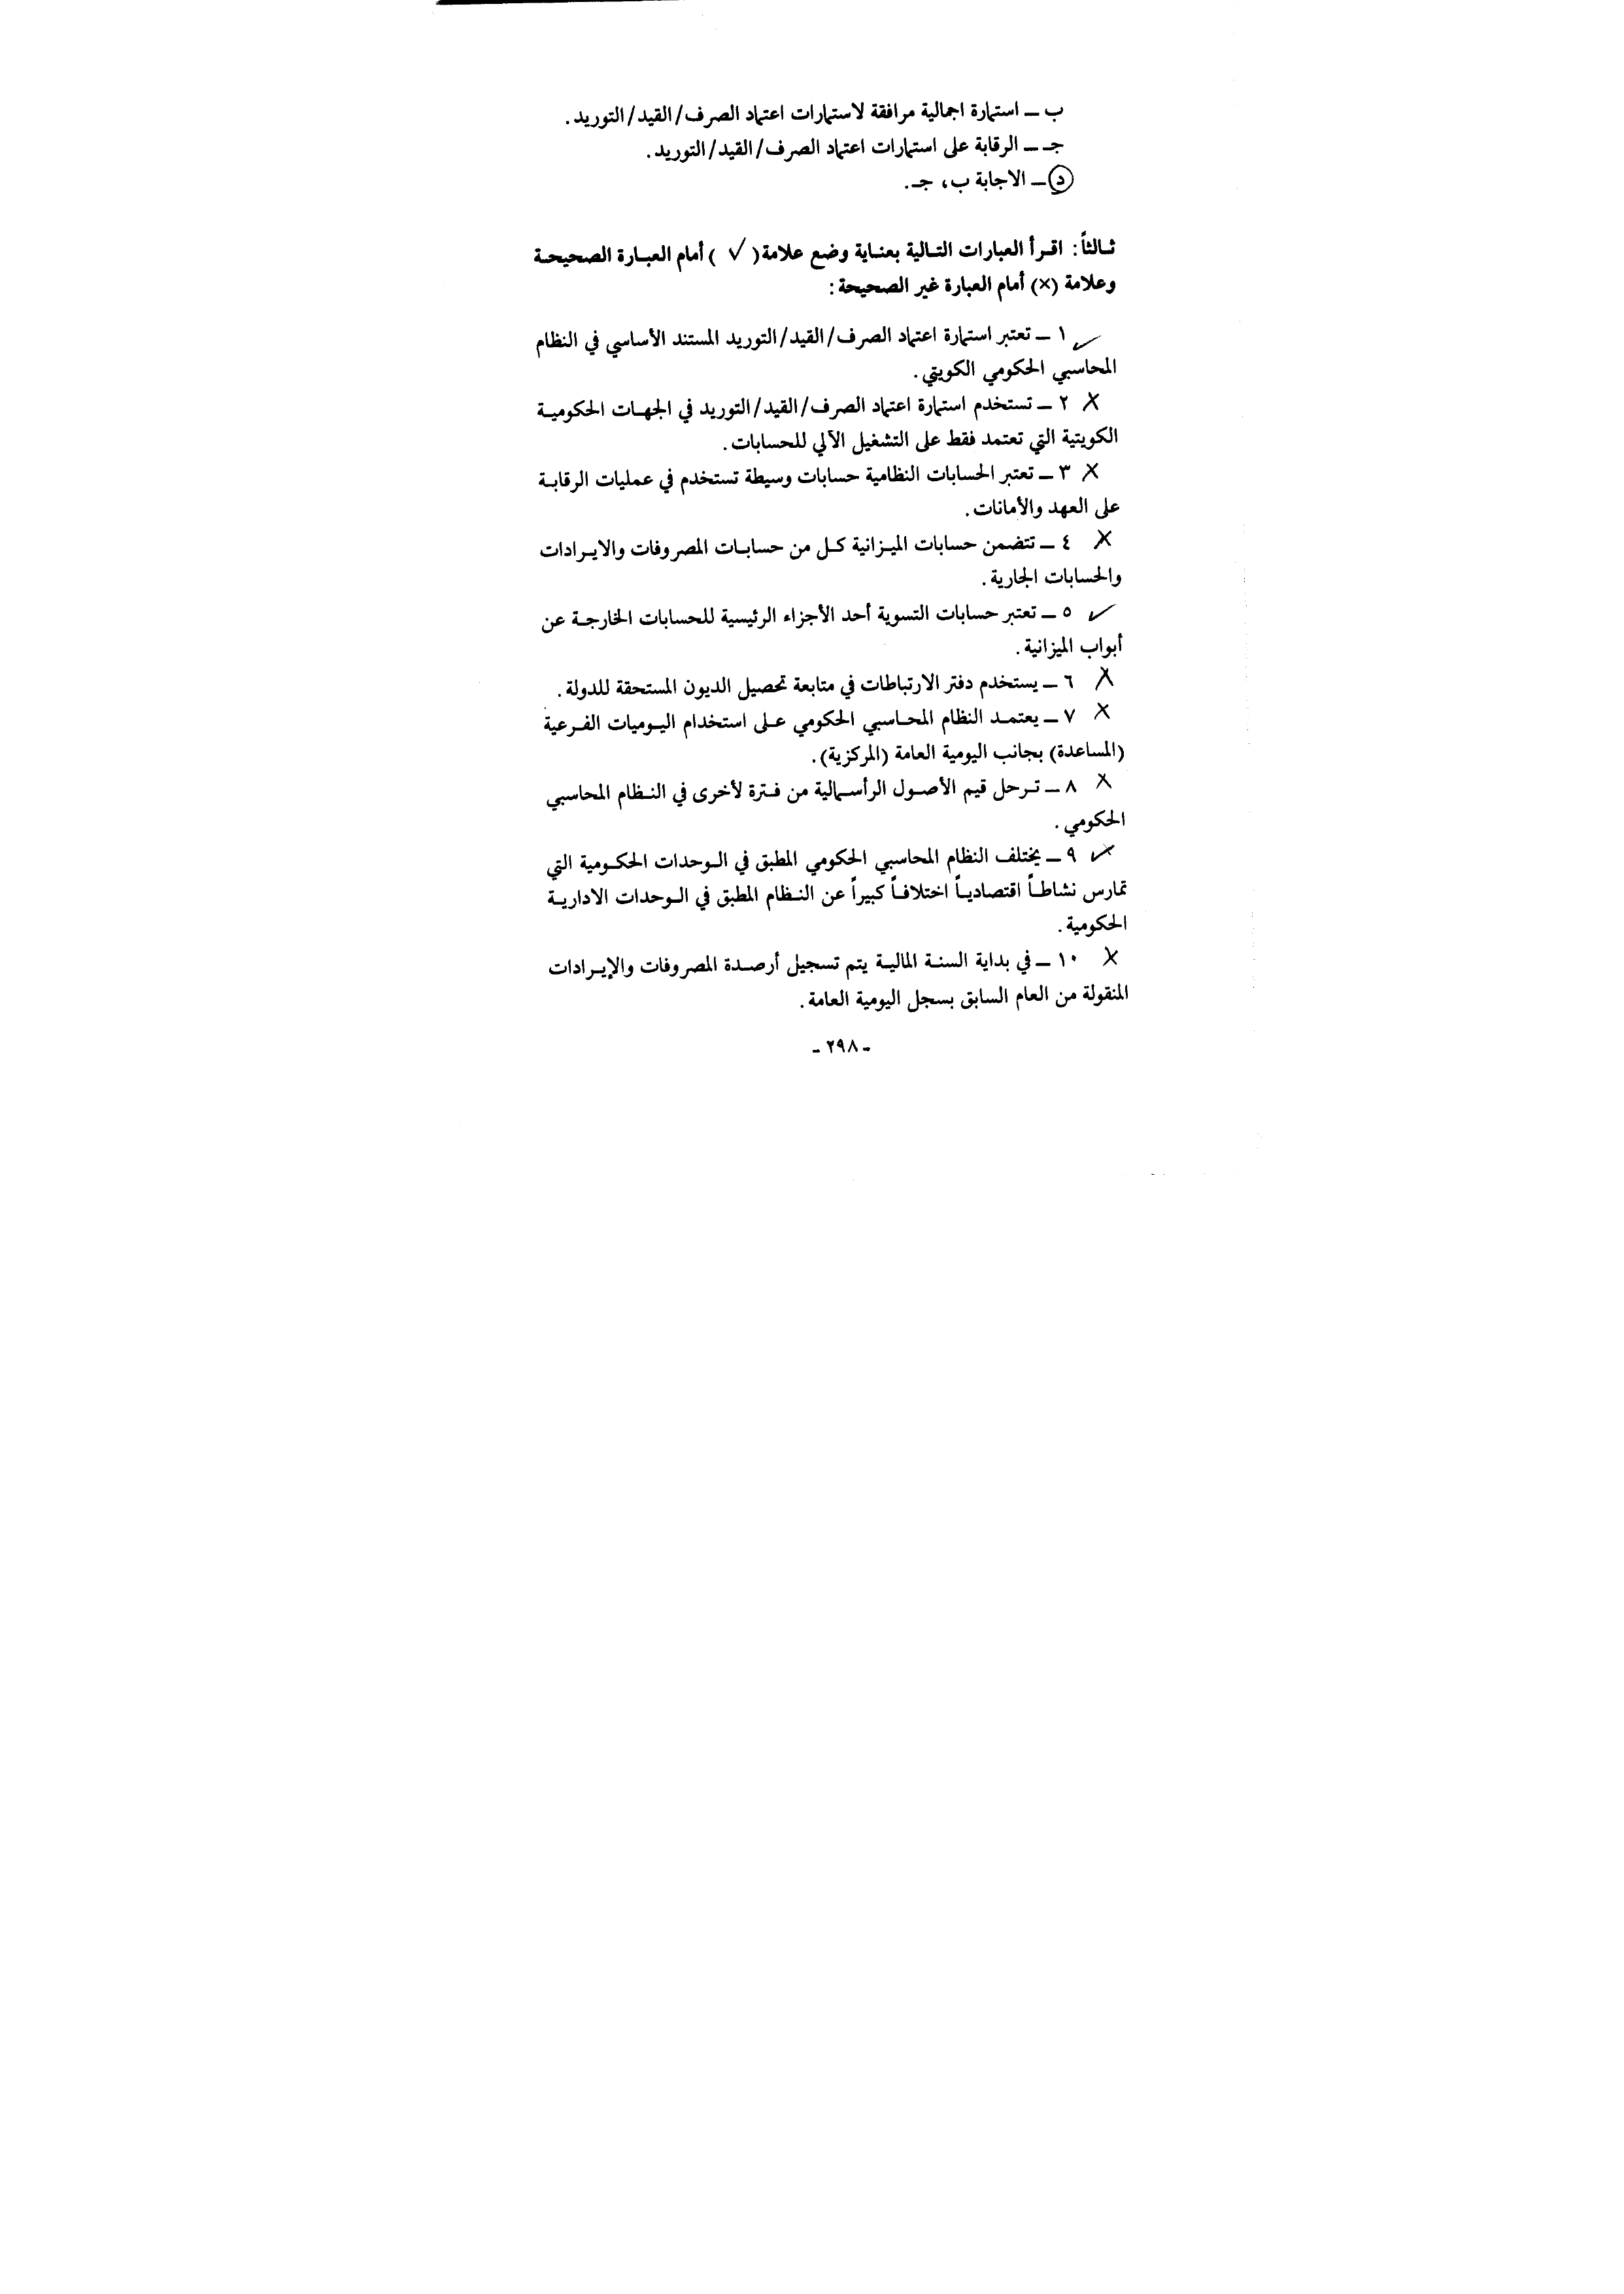 ب ــ استمارة اجمالية مرافقة لاستمارات اعتماد الصرف/القيد/التوريد.
جـ ــ الرقابة على استمارات اعتماد الصرف/القيد/التوريد.
د ــ الاجابة ب، جـ.
ثالثاً: اقرأ العبارات التالية بعناية وضع علامة ( ✓ ) أمام العبارة الصحيحة
وعلامة (×) أمام العبارة غير الصحيحة:
✓ ١ ــ تعتبر استمارة اعتماد الصرف/القيد/التوريد المستند الأساسي في النظام
المحاسبي الحكومي الكويتي.
× ٢ ــ تستخدم استمارة اعتماد الصرف/القيد/التوريد في الجهات الحكومية
الكويتية التي تعتمد فقط على التشغيل الآلي للحسابات.
× ٣ ــ تعتبر الحسابات النظامية حسابات وسيطة تستخدم في عمليات الرقابة
على العهد والأمانات.
× ٤ ــ تتضمن حسابات الميزانية كل من حسابات المصروفات والايرادات
والحسابات الجارية.
✓ ٥ ــ تعتبر حسابات التسوية أحد الأجزاء الرئيسية للحسابات الخارجة عن
أبواب الميزانية.
× ٦ ــ يستخدم دفتر الارتباطات في متابعة تحصيل الديون المستحقة للدولة.
× ٧ ــ يعتمد النظام المحاسبي الحكومي على استخدام اليوميات الفرعية
(المساعدة) بجانب اليومية العامة (المركزية).
× ٨ ــ ترحل قيم الأصول الرأسمالية من فترة لأخرى في النظام المحاسبي
الحكومي.
٩ ــ يختلف النظام المحاسبي الحكومي المطبق في الوحدات الحكومية التي
تمارس نشاطاً اقتصادياً اختلافاً كبيراً عن النظام المطبق في الوحدات الادارية
الحكومية.
× ١٠ ــ في بداية السنة المالية يتم تسجيل أرصدة المصروفات والإيرادات
المنقولة من العام السابق بسجل اليومية العامة.
- ٢٩٨ -